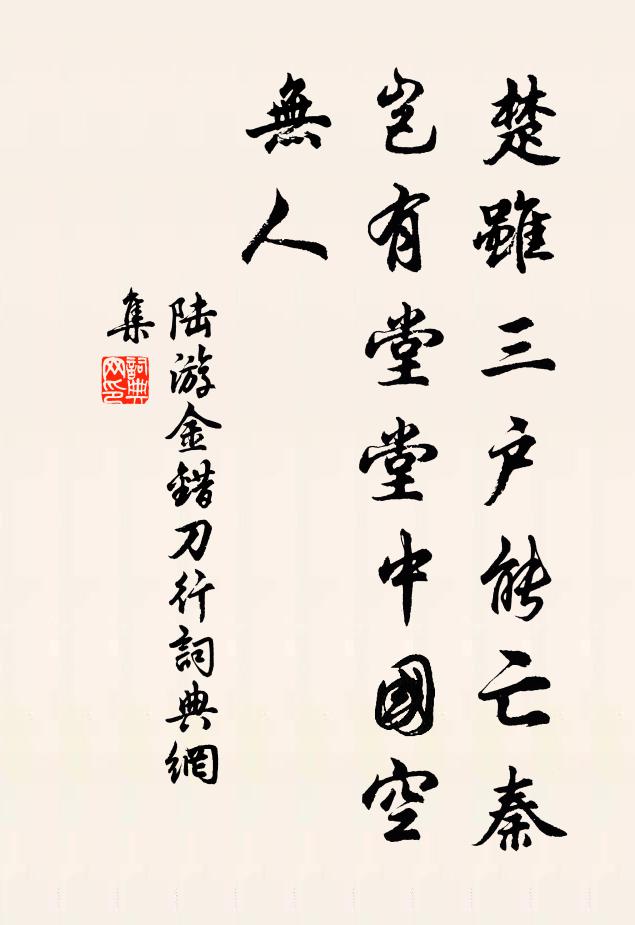 楚雖三户能亡秦
豈有堂堂中國空
無人
陆游金錯刀行詞典網
集
詞典
网印